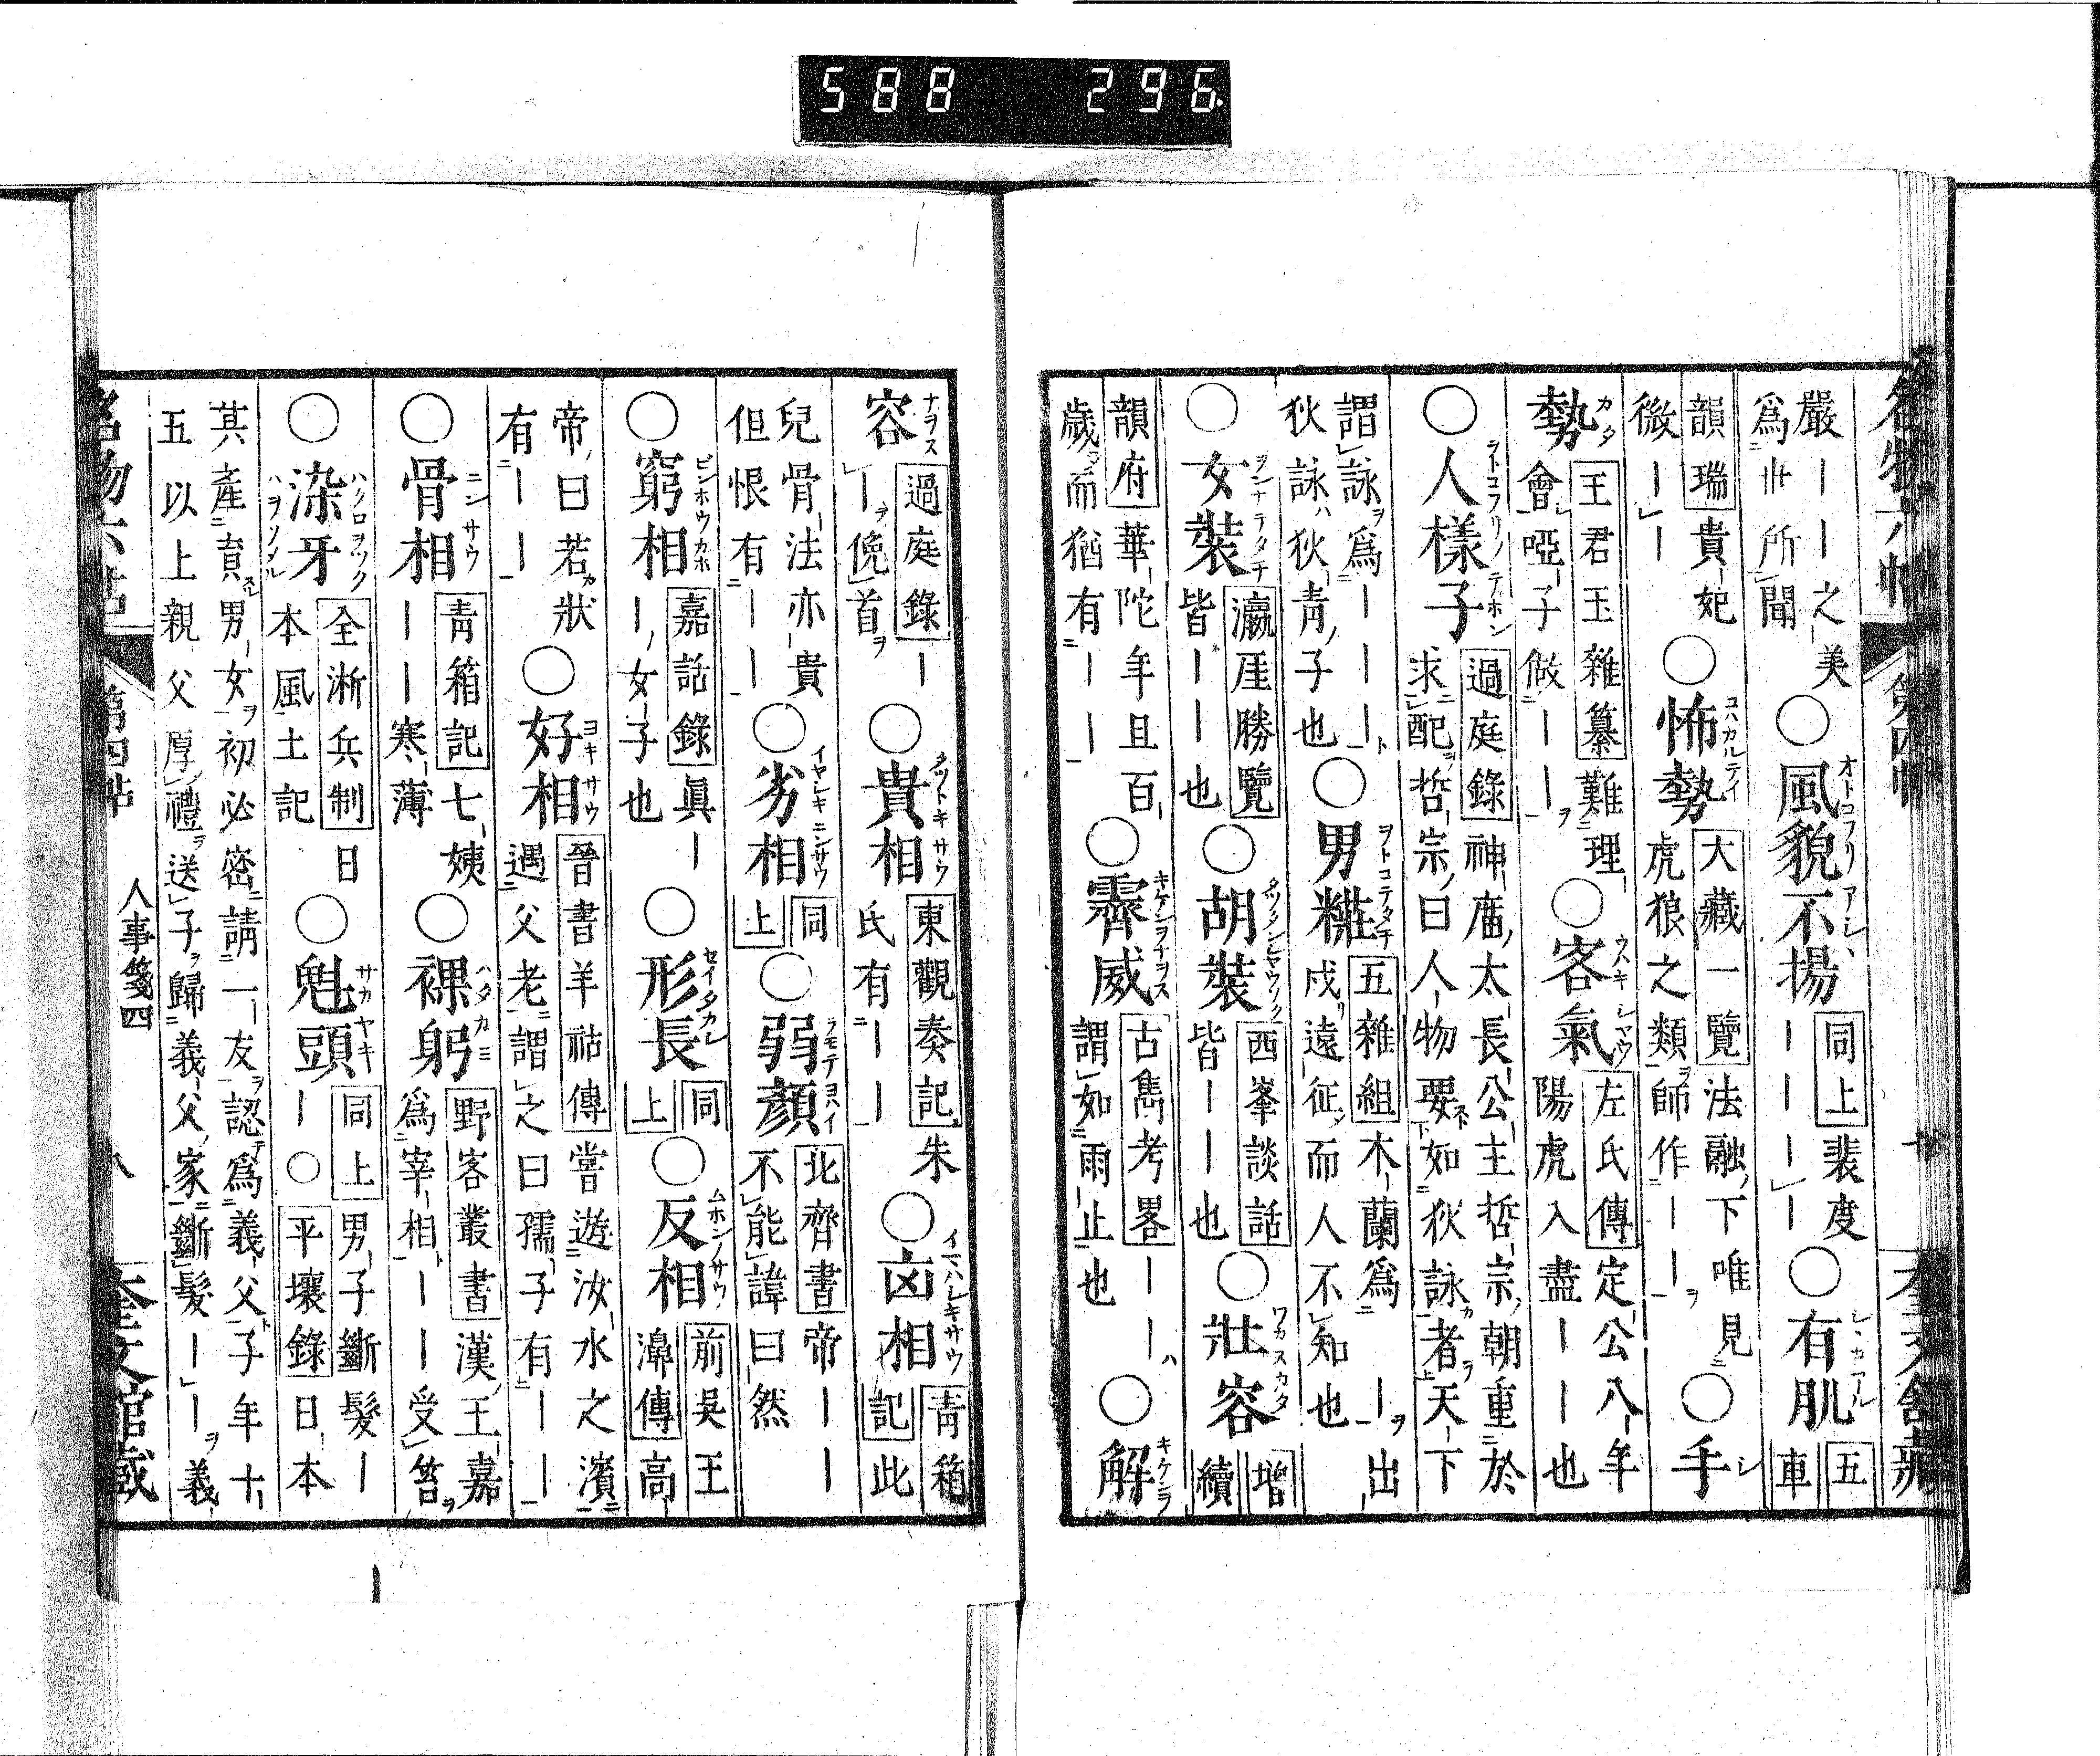 588 296
名物六帖 第四帖 奎文館藏
嚴ーー之美
爲世所聞
○風貌不揚 同上 裴度
ーーーー
○有肌 五車
韻瑞 貴妃
微ーー
○怖勢 大藏一覽 法融下唯見
虎狼之類師作ーー
○手
勢 王君玉雜纂 難理
會啞子做ーー
○客氣 左氏傳 定公八年
陽虎入盡ーー也
○人樣子 過庭錄 神廟太長公主哲宗朝重於
求配哲宗曰人物要如狄詠者天下
謂詠爲ーーー
狄詠狄青子也
○男粧 五雜組 木蘭爲ーー出
戍遠征而人不知也
○女裝 瀛厓勝覽
皆ーー也
○胡裝 西峯談話
皆ーー也
○壯容 增續
韻府 華陀年且百
歲而猶有ーー
○霽威 古雋考畧 ーー
謂如雨止也
○解
容 過庭錄 ー
ー俛首
○貴相 東觀奏記 朱
氏有ーー
○凶相 青箱記 此
兒骨法亦貴
但恨有ーー
○劣相 同上
○弱顏 北齊書 帝ーー
不能諱曰然
○窮相 嘉話錄 眞ー
ー女子也
○形長 同上
○反相 前吳王濞傳 高
帝曰若狀
有ーー
○好相 晉書羊祜傳 嘗遊汝水之濱
遇父老謂之曰孺子有ーー
○骨相 青箱記 七姨
ーー寒薄
○裸躬 野客叢書 漢王嘉
爲宰相ーー受笞
○染牙 全淅兵制 日
本風土記
○魁頭 同上 男子斷髮ー
ー○平壤錄 日本
其產育男女初必密請一友認爲義父子年十
五以上親父厚禮送子歸義父家斷髮ーー義
名物六帖 第四帖 人事箋四 八 奎文館藏